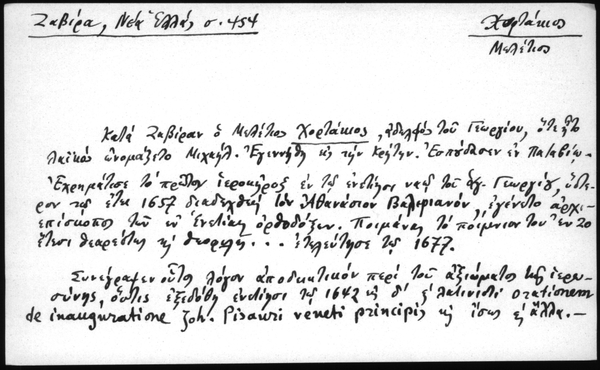 Ζαβίρα, Νέα Ἑλλάς σ. 454
Χορτάκιος
Μελέτιος
Κατά Ζαβίραν ὁ Μελέτιος Χορτάκιος, ἀδελφός τοῦ Γεωργίου, ὅτε ἦτο
λαϊκός ὠνομάζετο Μιχαήλ. Ἐγεννήθη εἰς τήν Κρήτην. Ἐσπούδασεν ἐν Παταβίῳ.
Ἐχρημάτισε τό πρῶτον ἱεροκῆρυξ ἐν τῷ ἐνετίησι ναῷ τοῦ ἁγ. Γεωργίου, ὕστε-
ρον τῷ ἔτει 1657 διαδεχθείς τόν Ἀθανάσιον Βαλεριανόν, ἐγένετο ἀρχι-
επίσκοπος τῶν ἐν Ἐνετίᾳ ὀρθοδόξων. Ποιμάνας τό ποίμνιον του ἐν 20
ἔτεσι θεαρέστως καί θεοφιλῶς... ἐτελεύτησε τῷ 1677.
Συνέγραψεν οὗτος λόγον ἀποδεικτικόν περί τοῦ ἀξιώματος τῆς ἱερω-
σύνης, ὅστις ἐξεδόθη ἐνετίησι τῷ 1642 καί δ' ἐν λατινιστί orationem
de inauguratione Joh. Pisauri veneti principis καί ἴσως καί ἄλλα.—